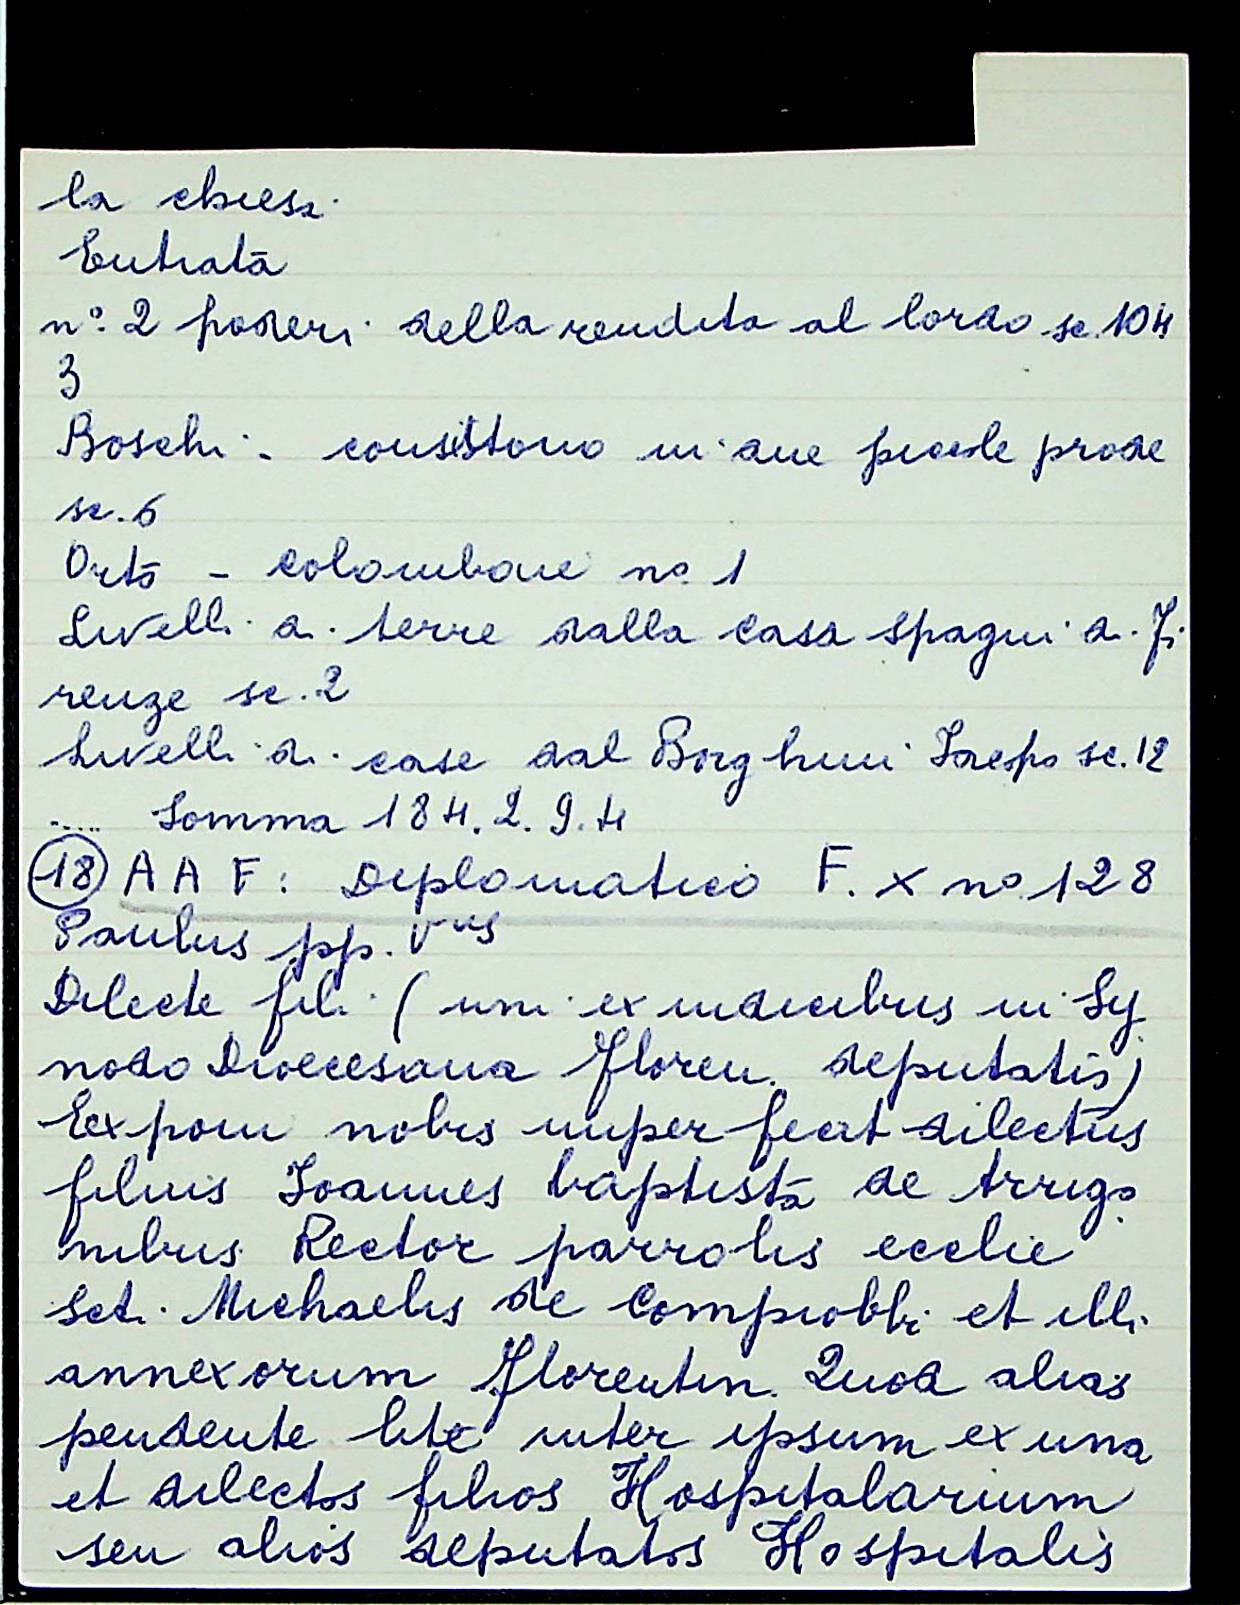 la chiesa.
Entrata
n.º 2 poderi della rendita al lordo sc. 104
3
Boschi - consistono in due piccole prode
sc. 6
Orto - colombaie nº. 1
Livelli di terre dalla casa Spagni di Fi
renze sc. 2
Livelli di case dal Borghini Iacopo sc. 12
..... Somma 184. 2. 9. 4
18 A A F: Diplomatico F. X nº 128
Paulus pp. Vus
Dilecte fili (uni ex iudicibus in Sy
nodo Dioecesana Floren. deputatis)
Exponi nobis nuper fecit dilectus
filius Ioannes baptista de Arrigo
nibus Rector parrolis ecclie
Scti. Michaelis de Compiobbi et illi
annexorum Florentin. Quod alias
pendente lite inter ipsum ex una
et dilectos filios Hospitalarium
seu alios deputatos Hospitalis